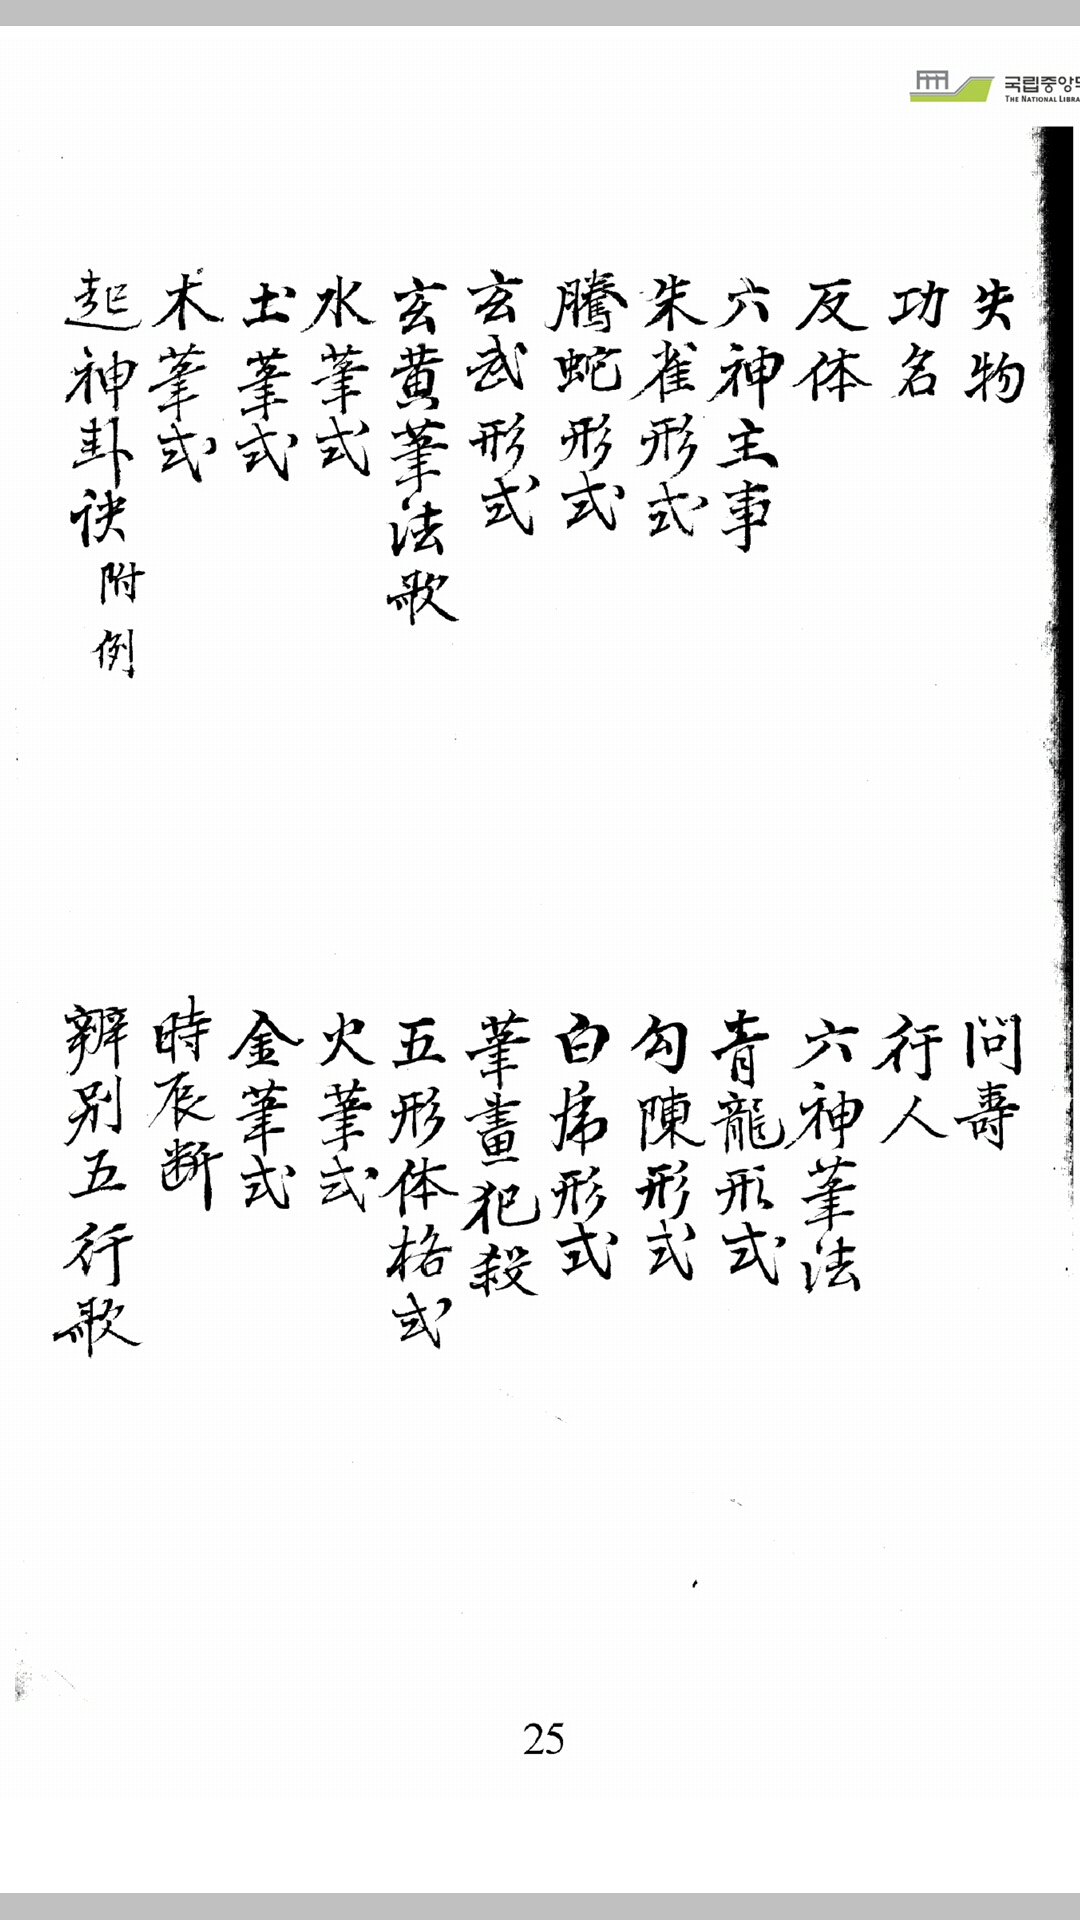 국립중앙도
THE NATIONAL LIBRA
失物 問壽
功名 行人
反体 六神筆法
六神主事 青龍形式
朱雀形式 勾陳形式
騰蛇形式 白虎形式
玄武形式 筆畫犯殺
玄黄筆法歌 五形体格式
水筆式 火筆式
土筆式 金筆式
木筆式 時辰断
起神卦訣附例 辨别五行歌
25